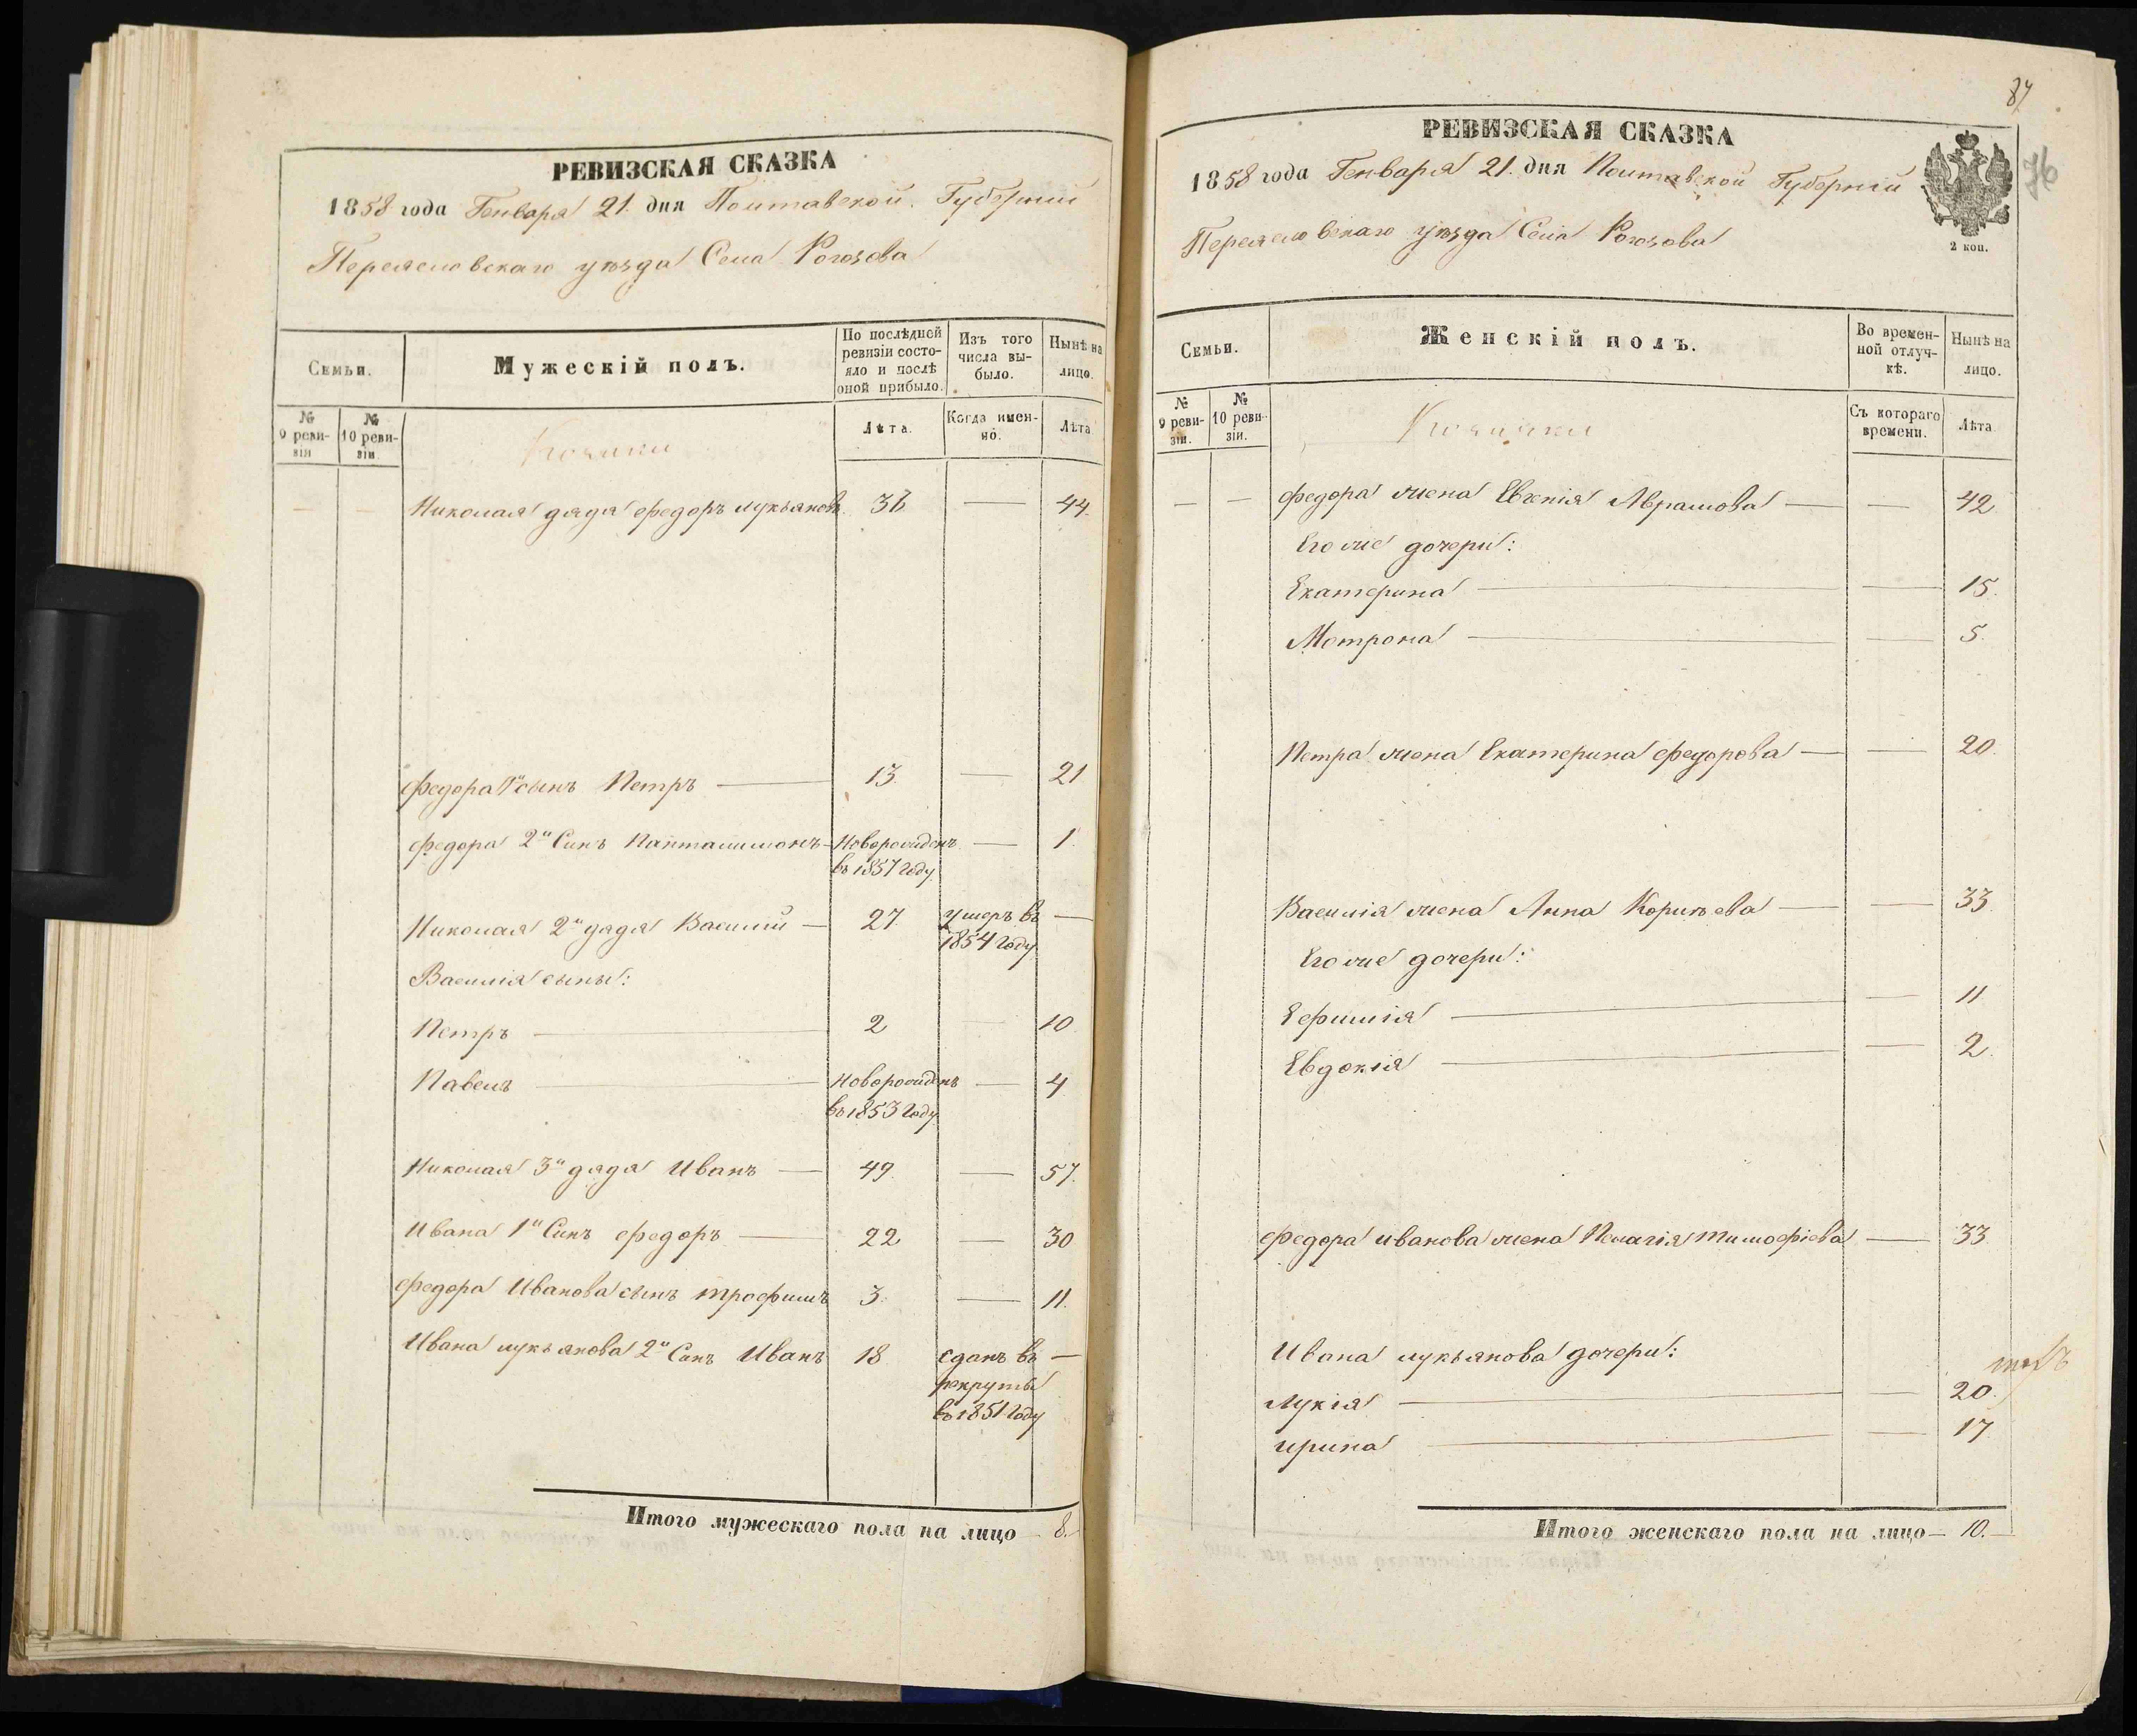 РЕВИЗСКАЯ СКАЗКА
1858 года Генваря 21. дня Полтавской Губернии
Переяславскаго уѣзда Села Рогозова
Семьи.
Мужескій полъ.
По послѣдней
ревизіи состо-
яло и послѣ
оной прибыло.
Изъ того
числа вы-
было.
Нынѣ на
лицо.
№
9 реви-
зіи
№
10 реви-
зіи
Козаки
Лѣта.
Когда имен-
но.
Лѣта
Николая дядя Федоръ Лукьяновъ 36 — 44.
Федора 1й сынъ Петръ — 13. — 21
Федора 2й Синъ Панталимонъ — Новорожденъ — 1.
въ 1857 году.
Николая 2й дядя Василий — 27. умеръ въ —
1854 году.
Василия сыны:
Петръ — 2 — 10.
Павелъ — Новорожденъ — 4
въ 1853 году.
Николая 3й дядя Иванъ — 49. — 57.
Ивана 1й Синъ Федоръ — 22 — 30
Федора Иванова сынъ Трофимъ 3. — 11.
Ивана Лукьянова 2й Синъ Иванъ 18. сданъ въ —
рекруты
въ 1851 году
Итого мужескаго пола на лицо — 8.
84
РЕВИЗСКАЯ СКАЗКА
76
1858 года Генваря 21. дня Полтавской Губернiи
Переяславскаго уѣзда Села Рогозова
2 коп.
Семьи.
Женскій полъ.
Во времен-
ной отлуч-
кѣ.
Нынѣ на
лицо.
№
9 реви-
зіи.
№
10 реви-
зіи.
Козачки
Съ котораго
времени.
Лѣта
— — Федора жена Евгенія Аврамова — — 42
Его же дочери:
Екатерина — — 15.
Мотрона — — 5.
Петра жена Екатерина Федорова — — 20.
Василія жена Анна Корнѣева — — 33.
Его же дочери:
Ефимія — — 11
Евдокія — — 2.
Федора Иванова жена Пелагія Тимофіева — 33
Ивана Лукьянова дочери:
Лукія — — 20.
Ирина — — 17
Итого женскаго пола на лицо — 10. —